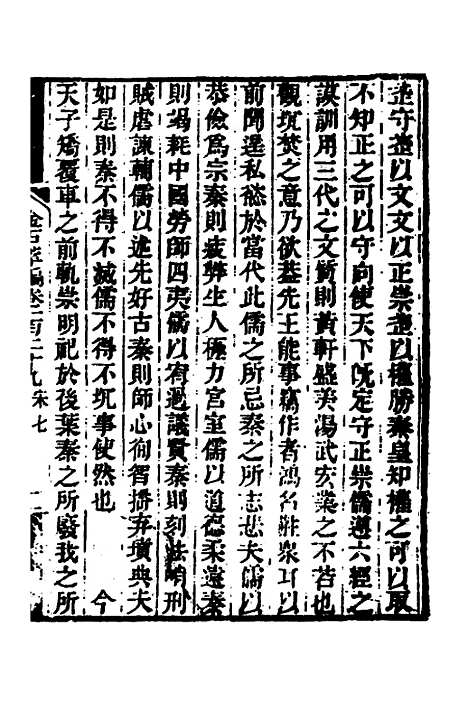 蓋守蓋以文文以正崇蓋以權勝秦皇知權之可以取
不知正之可以守向使天下既定守正崇儒遵六經之
謨訓用三代之文質則黃軒盛美湯武宏業之不若也
觀坑焚之意乃欲蓋先王能事竊作者鴻名雖衆耳以
前聞逞私慾於當代此儒之所忌秦之所志悲夫儒以
恭儉爲宗秦則疲弊生人極力宮室儒以道德柔遠秦
則竭耗中國勞師四夷儒以宥過議賢秦則刻法峭刑
賊虐諫輔儒以述先好古秦則師心徇智播弃墳典夫
如是則秦不得不滅儒不得不坑事使然也　今
天子矯覆車之前軌崇明祀於後葉秦之所廢我之所
金石萃編卷一百二十九宋七